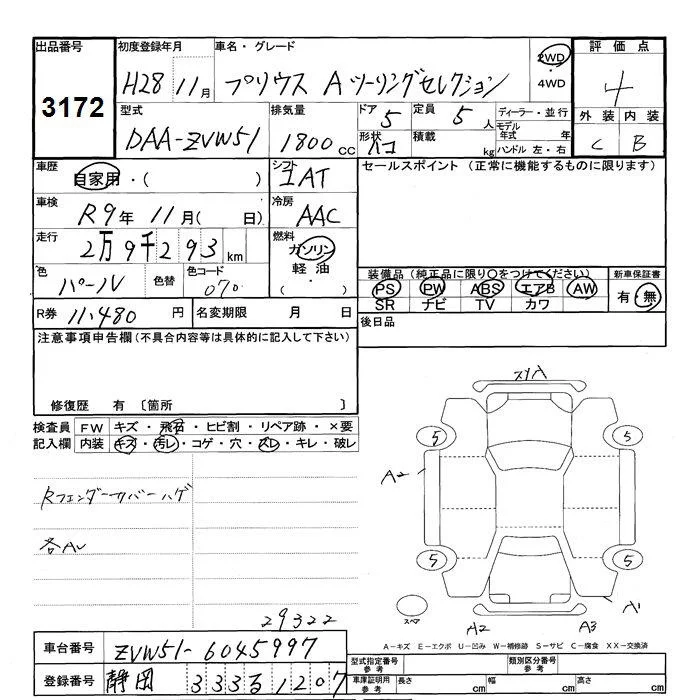 出品番号 初度登録年月 車名・グレード 2WD 評価点
3172 H28 11月 プリウス Aツーリングセレクション ・4WD 4
型式 排気量 ドア 5 定員 5人 ディーラー・並行 外装 内装
DAA-ZVW51 1800cc 形状 積載 kg モデル年式 年 C B
ハンドル 左・右
車歴 自家用・( ) シフト IAT セールスポイント(正常に機能するものに限ります)
車検 R9年 11月( 日) 冷房 AAC
走行 2万9千293km 燃料 ガソリン
軽油
・( )
色 パール 色替 色コード 070 装備品(純正品に限り○をつけてください) 新車保証書
PS PW ABS エアB AW 有・無
SR ナビ TV カワ
R券 11,480円 名変期限 月 日 後日品
注意事項申告欄(不具合内容等は具体的に記入して下さい)
修復歴 有 〔箇所 〕
検査員 FW キズ・飛石・ヒビ割・リペア跡・×要
記入欄 内装 キズ・汚レ・コゲ・穴・スレ・キレ・破レ
Rフェンダーカバーハゲ
各AU
29322
スリA
5 5
A2
5 5
スペア A2 A3 A1
A-キズ E-エクボ U-凹み W-補修跡 S-サビ C-腐食 XX-交換済
車台番号 ZVW51-6045997 型式指定番号 参考 類別区分番号 参考
登録番号 静岡 333 る 1207 車庫証明用 参考 長さ cm 幅 cm 高さ cm